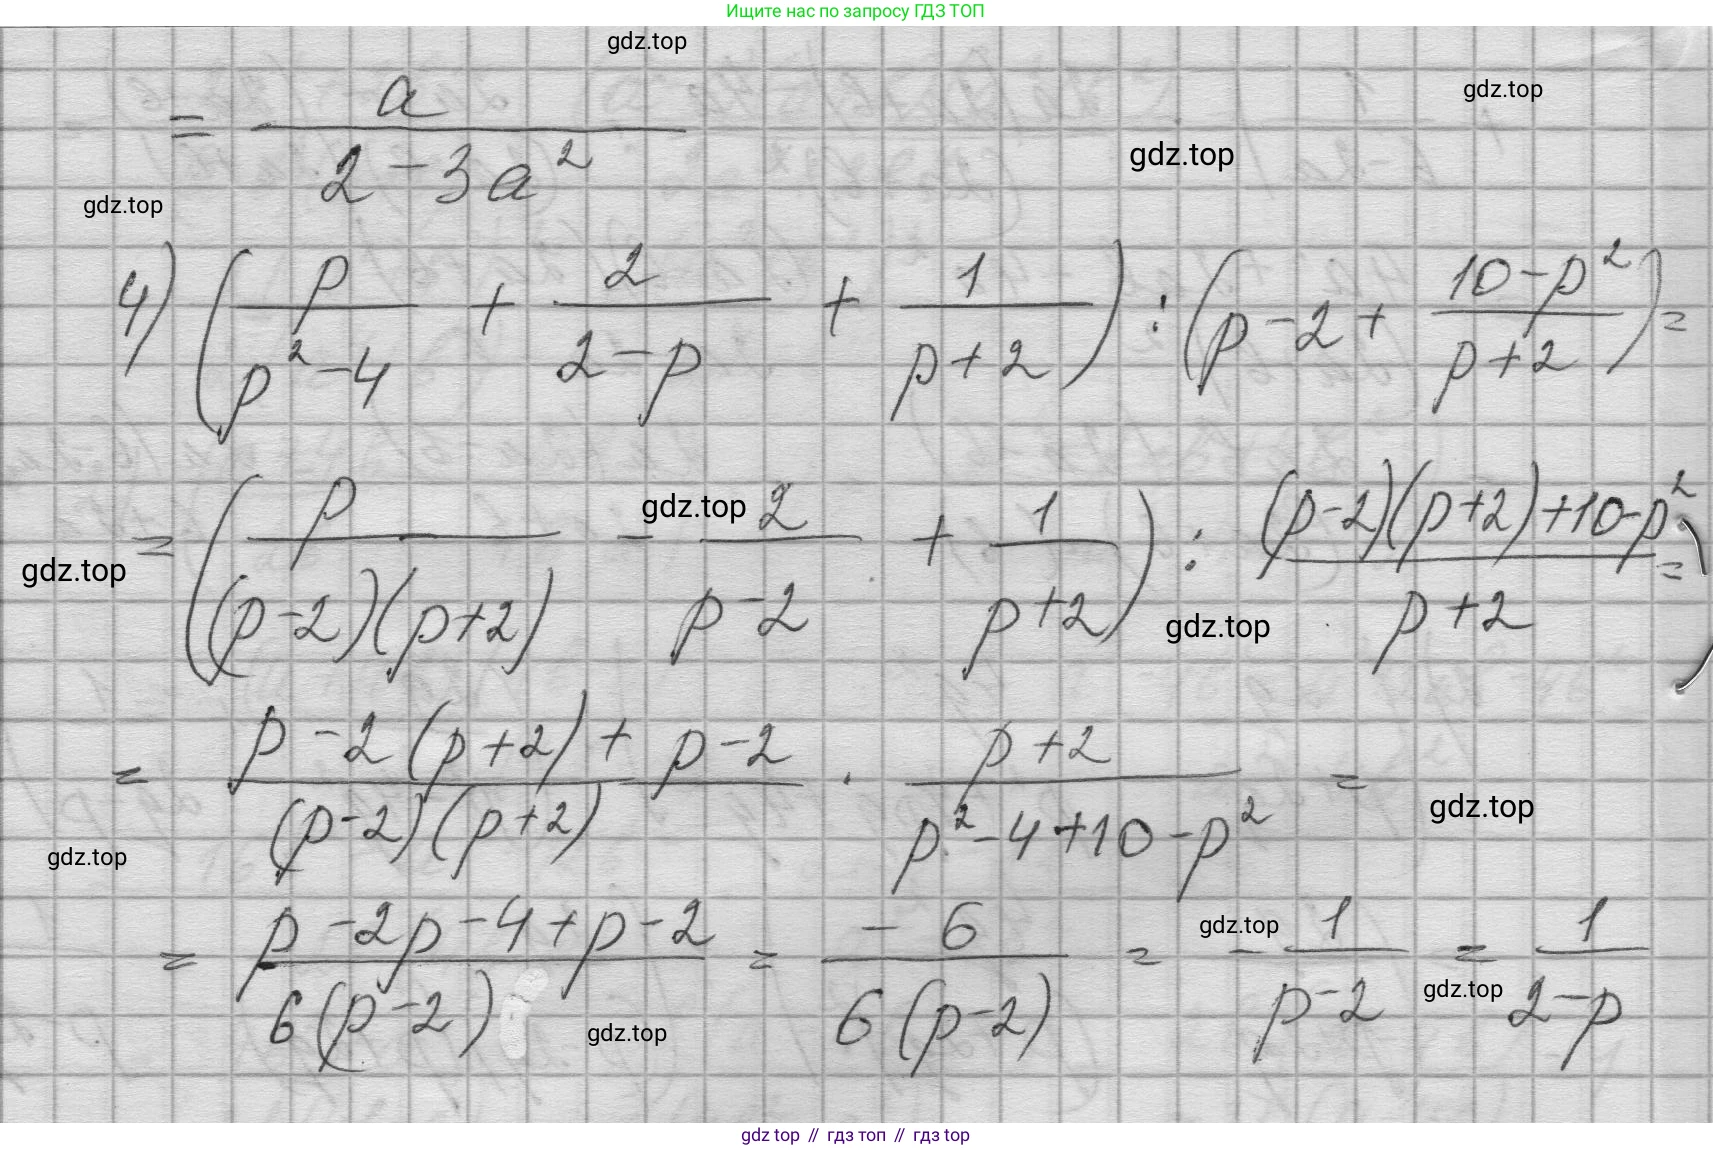 Ищите нас по запросу ГДЗ ТОП
gdz.top
gdz.top
= a / (2 - 3a²)
gdz.top
gdz.top
4) (p / (p² - 4) + 2 / (2 - p) + 1 / (p + 2)) : (p - 2 + (10 - p²) / (p + 2)) =
= (p / ((p - 2)(p + 2)) - 2 / (p - 2) + 1 / (p + 2)) : ((p - 2)(p + 2) + 10 - p²) / (p + 2) =
gdz.top
gdz.top
gdz.top
= (p - 2(p + 2) + p - 2) / ((p - 2)(p + 2)) · (p + 2) / (p² - 4 + 10 - p²) =
gdz.top
gdz.top
= (p - 2p - 4 + p - 2) / (6(p - 2)) = -6 / (6(p - 2)) = - 1 / (p - 2) = 1 / (2 - p)
gdz.top
gdz.top
gdz.top
gdz top // гдз топ // gdz top